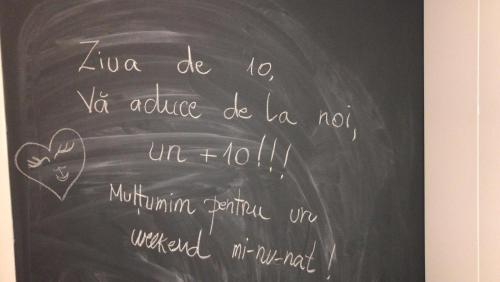 Ziua de 10,
Vă aduce de la noi,
un +10!!!
Mulțumim pentru un
weekend mi-nu-nat!